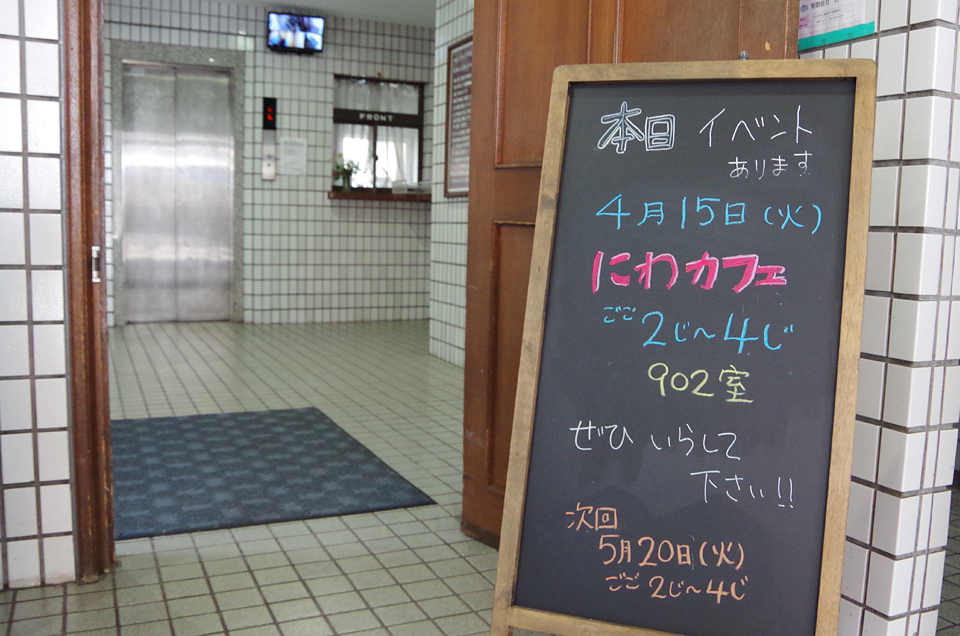 FRONT
本日 イベント
あります
4月15日(火)
にわカフェ
ごご 2じ～4じ
902室
ぜひ いらして
下さい!!
次回
5月20日(火)
ごご 2じ～4じ